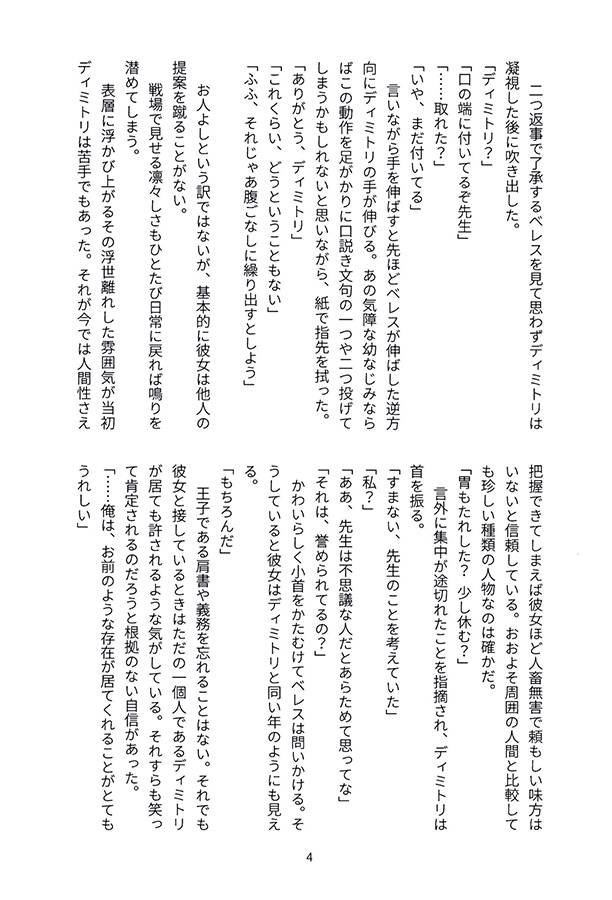 二つ返事で了承するベレスを見て思わずディミトリは
凝視した後に吹き出した。
「ディミトリ？」
「口の端に付いてるぞ先生」
「……取れた？」
「いや、まだ付いてる」
言いながら手を伸ばすと先ほどベレスが伸ばした逆方
向にディミトリの手が伸びる。あの気障な幼なじみなら
ばこの動作を足がかりに口説き文句の一つや二つ投げて
しまうかもしれないと思いながら、紙で指先を拭った。
「ありがとう、ディミトリ」
「これくらい、どうということもない」
「ふふ、それじゃあ腹ごなしに繰り出すとしよう」
お人よしという訳ではないが、基本的に彼女は他人の
提案を蹴ることがない。
戦場で見せる凛々しさもひとたび日常に戻れば鳴りを
潜めてしまう。
表層に浮かび上がるその浮世離れした雰囲気が当初
ディミトリは苦手でもあった。それが今では人間性さえ
把握できてしまえば彼女ほど人畜無害で頼もしい味方は
いないと信頼している。おおよそ周囲の人間と比較して
も珍しい種類の人物なのは確かだ。
「胃もたれした？　少し休む？」
言外に集中が途切れたことを指摘され、ディミトリは
首を振る。
「すまない、先生のことを考えていた」
「私？」
「ああ、先生は不思議な人だとあらためて思ってな」
「それは、誉められてるの？」
かわいらしく小首をかたむけてベレスは問いかける。そ
うしていると彼女はディミトリと同い年のようにも見え
る。
「もちろんだ」
王子である肩書や義務を忘れることはない。それでも
彼女と接しているときはただの一個人であるディミトリ
が居ても許されるような気がしている。それすらも笑っ
て肯定されるのだろうと根拠のない自信があった。
「……俺は、お前のような存在が居てくれることがとても
うれしい」
4